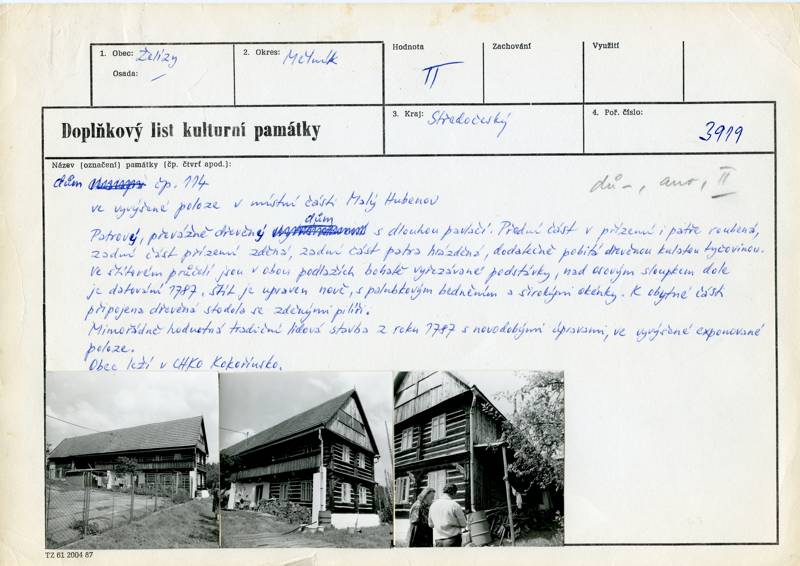 1. Obec: Želízy
Osada: —
2. Okres: Mělník
Hodnota
II
Zachování
Využití
Doplňkový list kulturní památky
3. Kraj: Středočeský
4. Poř. číslo:
3919
Název (označení) památky (čp. čtvrť apod.):
dům čp. 114
dům, ano, II
ve vyvýšené poloze v místní části Malý Hubenov
Patrový, převážně dřevěný dům s dlouhou pavlačí. Přední část v přízemí i patře roubená,
zadní část přízemí zděná, zadní část patra hrázděná, dodatečně pobitá dřevěnou kulatou tyčovinou.
Ve štítovém průčelí jsou v obou podlažích bohatě vyřezávané podstávky, nad osovým sloupkem dole
je datování 1787. štít je upraven nově, s palubkovým bedněním a širokými okénky. K obytné části
připojena dřevěná stodola se zděnými pilíři.
Mimořádně hodnotná tradiční lidová stavba z roku 1787 s novodobými úpravami, ve vyvýšené exponované
poloze.
Obec leží v CHKO Kokořínsko.
TZ 61 2004 87